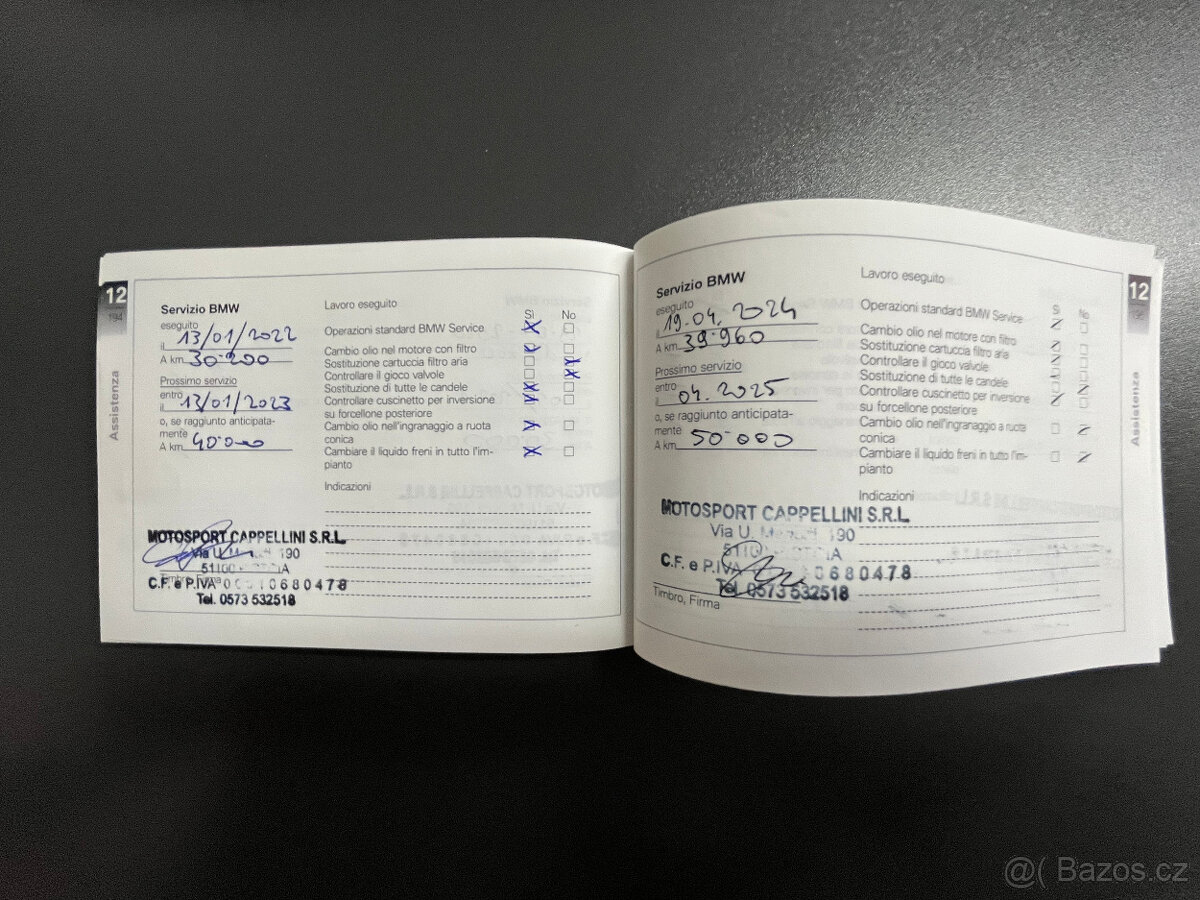 12
Assistenza
Servizio BMW
eseguito
il 13/01/2022
A km 30.200
Prossimo servizio
entro
il 13/01/2023
o, se raggiunto anticipata-
mente
A km 40.000
Lavoro eseguito
Sì No
Operazioni standard BMW Service
Cambio olio nel motore con filtro
Sostituzione cartuccia filtro aria
Controllare il gioco valvole
Sostituzione di tutte le candele
Controllare cuscinetto per inversione
su forcellone posteriore
Cambio olio nell'ingranaggio a ruota
conica
Cambiare il liquido freni in tutto l'im-
pianto
Indicazioni
MOTOSPORT CAPPELLINI S.R.L.
Via U. 190
C.F. e P.IVA 0680478
Tel. 0573 532518
Timbro, Firma
12
Assistenza
Servizio BMW
eseguito
il 19.04.2024
A km 39.960
Prossimo servizio
entro
il 04.2025
o, se raggiunto anticipata-
mente
A km 50.000
Lavoro eseguito
Sì No
Operazioni standard BMW Service
Cambio olio nel motore con filtro
Sostituzione cartuccia filtro aria
Controllare il gioco valvole
Sostituzione di tutte le candele
Controllare cuscinetto per inversione
su forcellone posteriore
Cambio olio nell'ingranaggio a ruota
conica
Cambiare il liquido freni in tutto l'im-
pianto
Indicazioni
MOTOSPORT CAPPELLINI S.R.L.
Via U. 190
C.F. e P.IVA 0680478
Tel. 0573 532518
Timbro, Firma
@( Bazos.cz